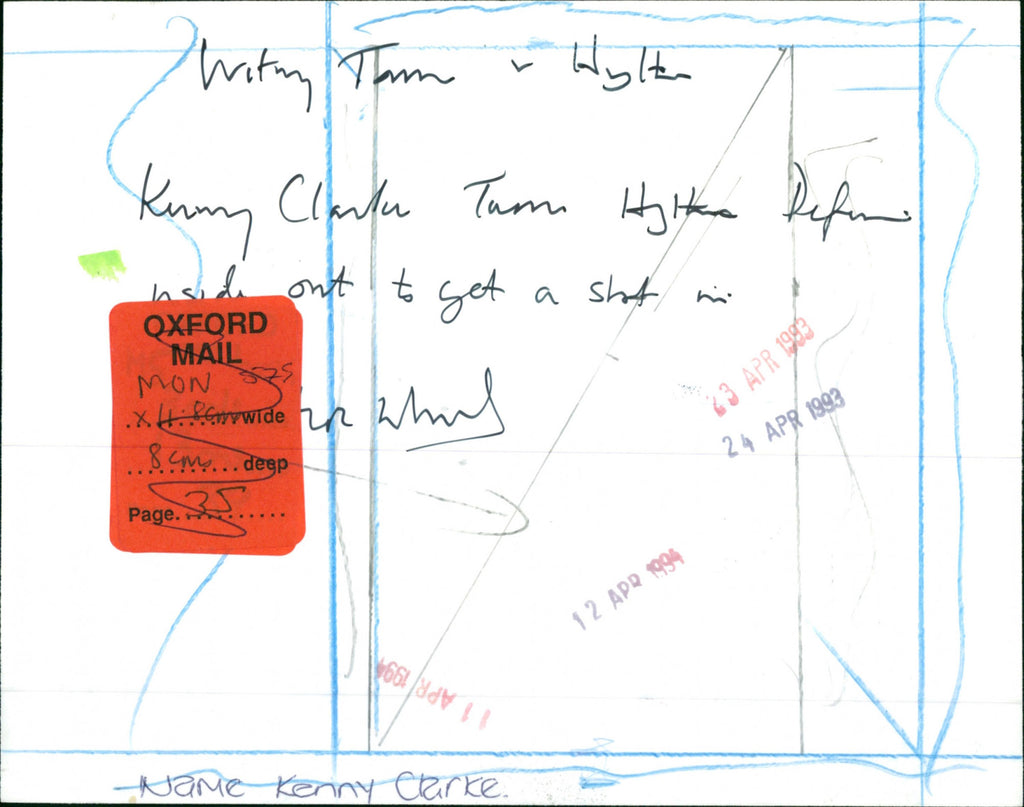 Witney Town v Hylton
Kenny Clarke Turns Hylton Defence
inside out to get a shot in
OXFORD
MAIL
MON 5/25
x 4. 8cm wide
8 cms deep
Page. 35
23 APR 1993
24 APR 1993
12 APR 1994
11 APR 1994
Name Kenny Clarke.